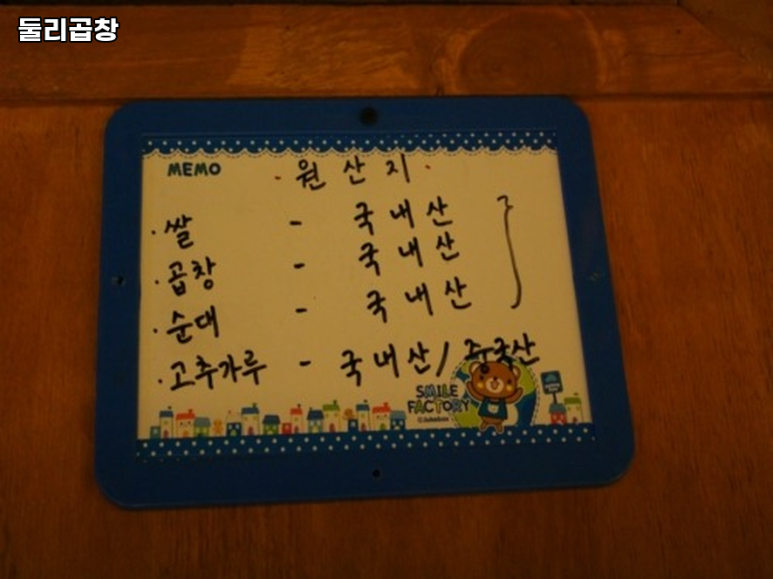 둘리곱창
MEMO
· 원산지 ·
· 쌀 - 국내산
· 곱창 - 국내산
· 순대 - 국내산
· 고추가루 - 국내산 / 중국산
SMILE
FACTORY
©Jukebox